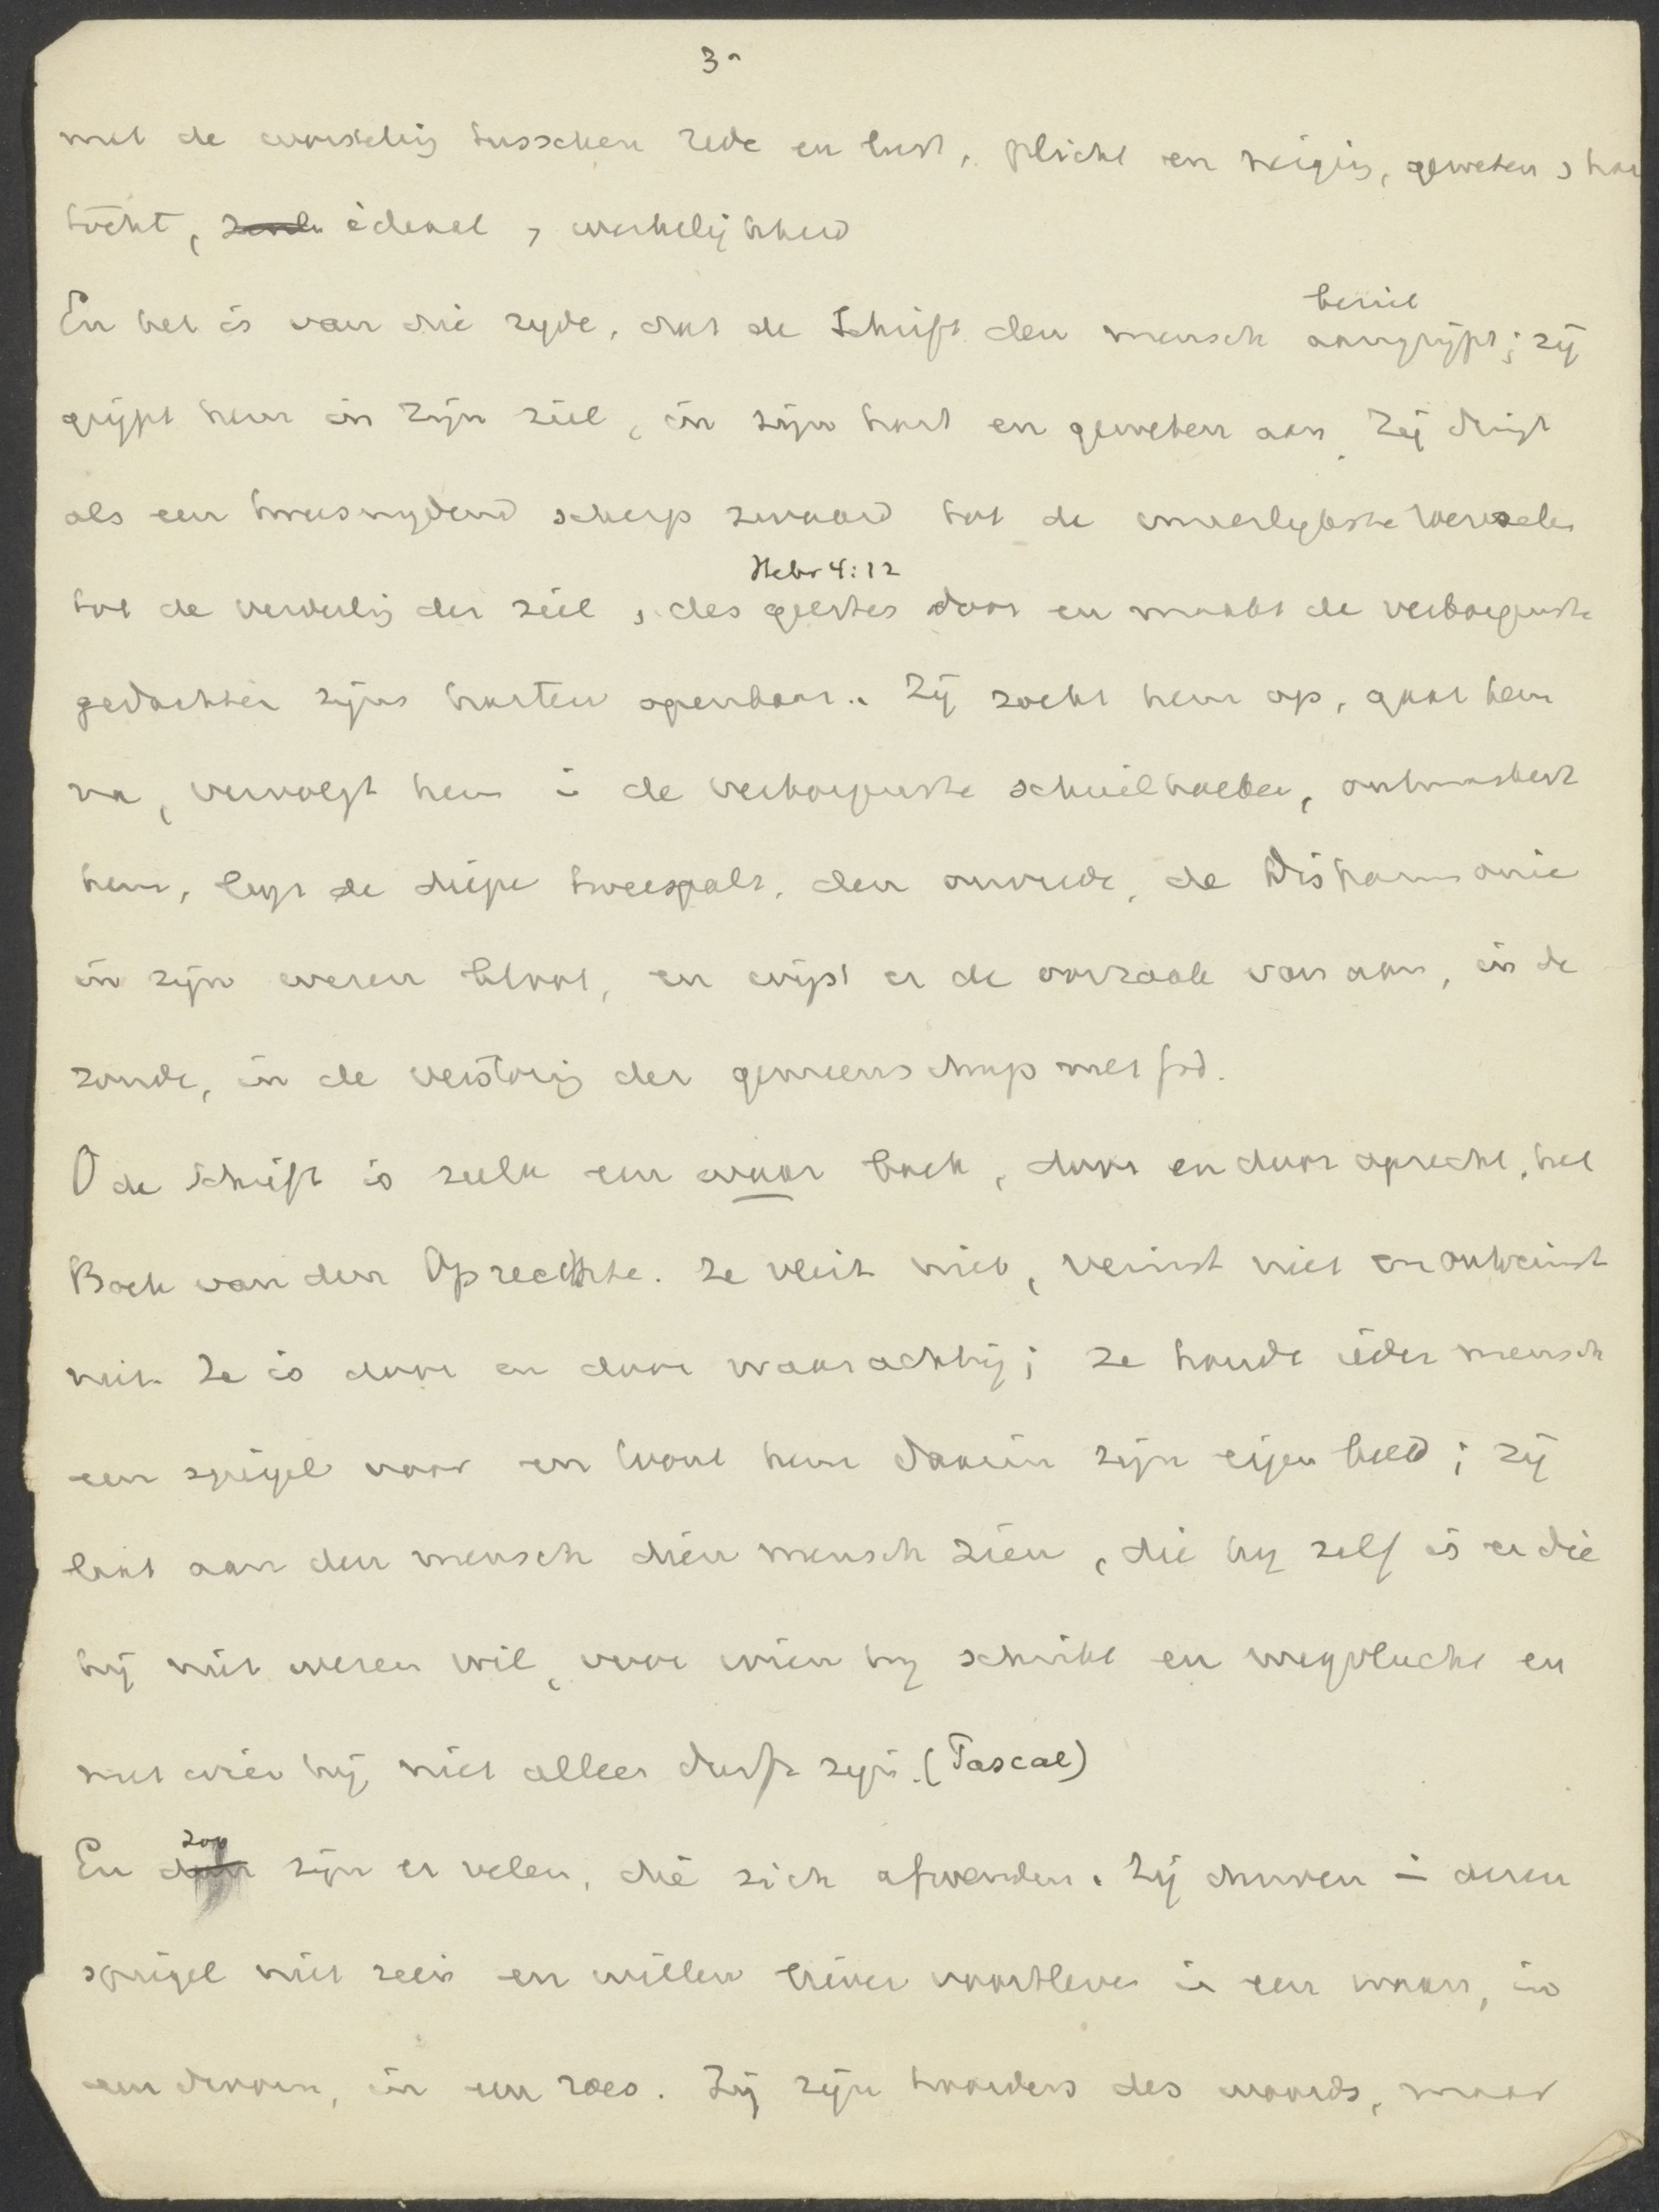 3a
met de worsteling tusschen rede en lust, plicht en neiging, geweten & har
tocht, ideaal & werkelijkheid
En het is van die zyde, dat de Schrift den mensch aangrijpt; zij
grijpt hem in zijn ziel, in zijn hart en geweten aan. Zij dringt
als een tweesnydend scherp zwaard tot de wortelen
Hebr 4:12
tot de verdeling der ziel & des geestes door en maakt de verborgenste
gedachten zijns harten openbaar. Zij zoekt hem op, gaat hem
na, vervolgt hem in de verborgenste schuilhoeken, ontmaskert
hem, legt de diepe tweespalt, den onvrede, de disharmonie
in zijn wezen bloot, en wijst er de oorzaak van aan, in de
zonde, in de verstoring der gemeenschap met God.
O de Schrift is zulk een waar boek, door en door oprecht, het
Boek van den Oprechte. Ze vleit niet, veinst niet en ontveinst
niet. Ze is door en door waarachtig; ze houdt ieder mensch
een spiegel voor en toont hem daarin zijn eigen beeld; zij
laat aan den mensch dien mensch zien, die hy zelf is en die
hij niet wezen wil, voor wien hy schrikt en wegvlucht en
met wien hij niet alleen durft zijn. (Pascal)
En zijn er velen, die zich afwenden. Zij durven in dezen
spiegel niet zien en willen liever voortleven in een waan, in
een droom, in een roes. Zij zijn hoorders des woords, maar